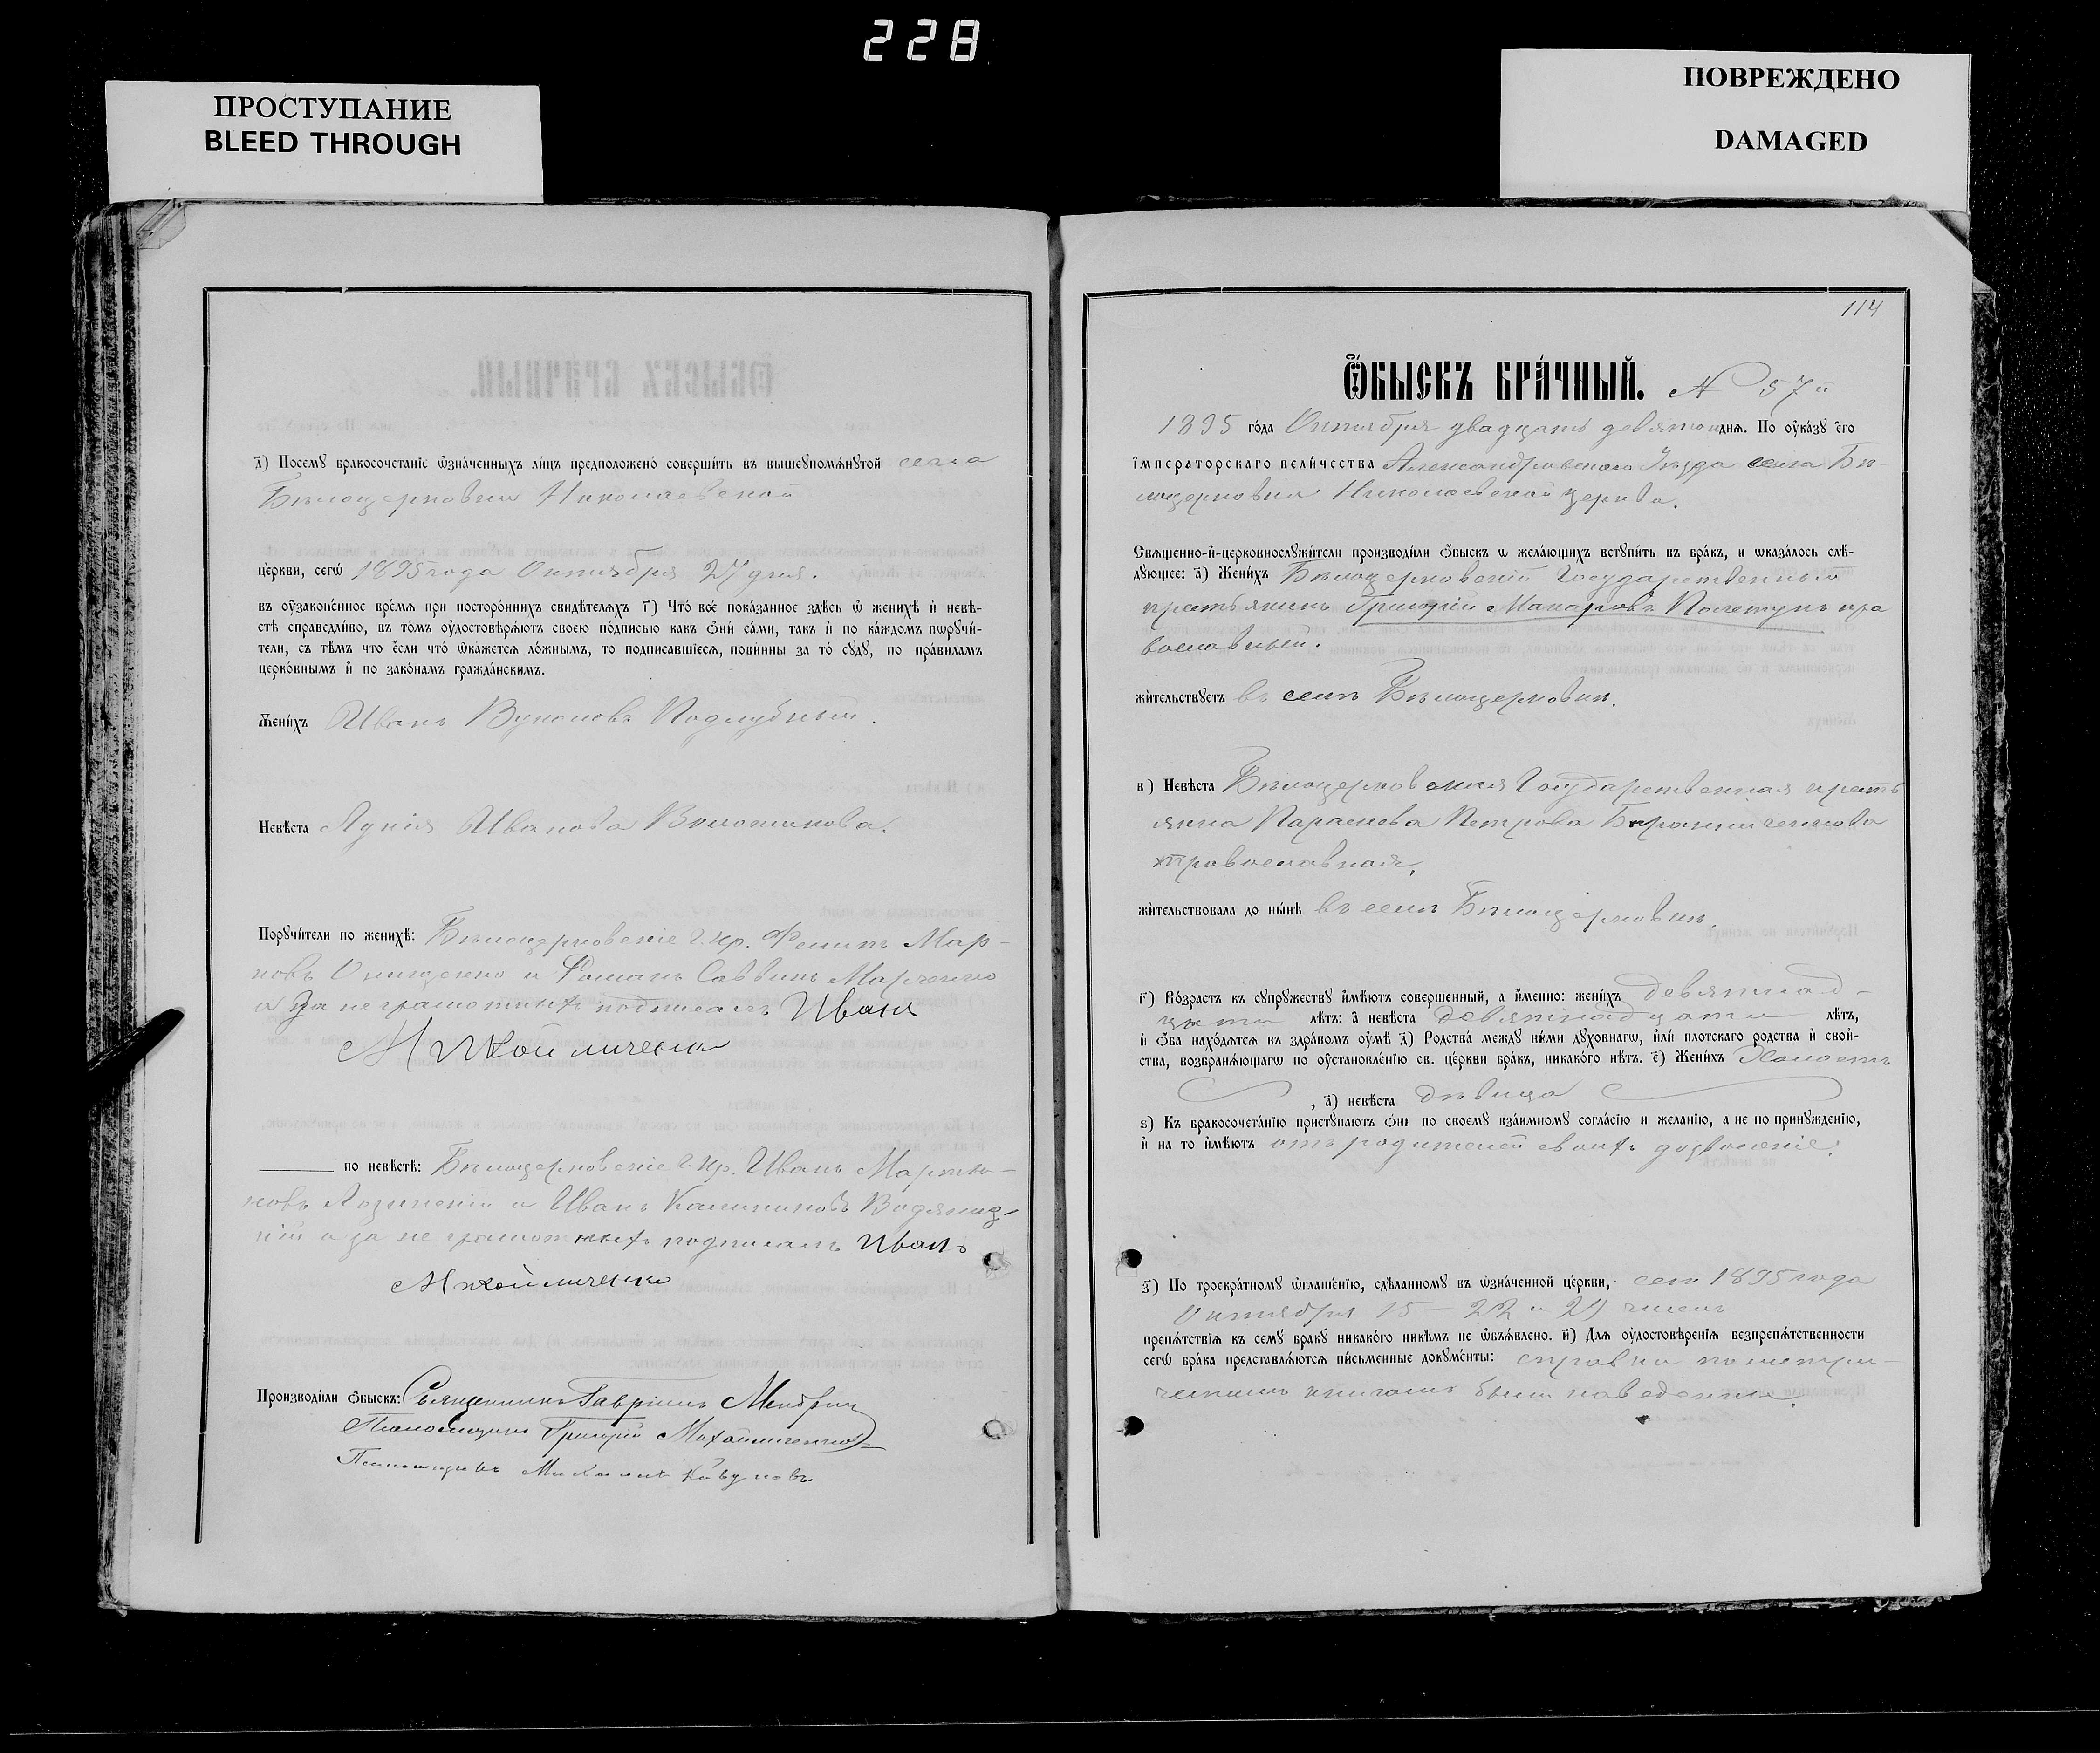 228
ПРОСТУПАНИЕ
BLEED THROUGH
ПОВРЕЖДЕНО
DAMAGED
д҃) Посему бракосочетаніе ѡзначенныхъ лицъ предположено совершить въ вышеупомянутой села
Бѣлоцерковки Николаевской
церкви, сегѡ 1895 года Октября 27 дня.
въ оузаконенное время при постороннихъ свидѣтеляхъ г҃) Что все показанное здѣсь ѡ женихѣ и невѣ-
стѣ справедливо, въ томъ оудостовѣряютъ своею подписью какъ ѻни сами, такъ и по каждомъ пѡручи-
тели, съ тѣмъ что если что ѡкажется ложнымъ, то подписавшіеся, повинны за то суду, по правиламъ
церковнымъ и по законамъ гражданскимъ.
Женихъ Иванъ Вуколовъ Поддубный.
Невѣста Лукія Иванова Волошинова.
Поручители по женихѣ: Бѣлоцерковскіе г. кр. Филипъ Мар-
ковъ Онищенко и Романъ Саввинъ Марченко
а за не грамотныхъ подписалъ Иванъ
Михайличенко
по невѣстѣ: Бѣлоцерковскіе г. кр. Иванъ Марты-
новъ Лозинскій и Иванъ Калиниковъ Водяниц-
кій а за не грамотныхъ подписалъ Иванъ
Михайличенко
Производили ѻбыскъ: Священникъ Гавріилъ
Псаломщикъ Григорій Михайличенко
Псаломщикъ Михаилъ
114
Ѻбыскъ брачный. N 57й
1895 года Октября двадцать девятого дня. По оуказу его
императорскаго величества Александровскаго Уѣзда села Бѣ-
лоцерковки Николаевской церкви.
Священно-и-церковнослужители производили ѻбыскъ ѡ желающихъ вступить въ бракъ, и ѡказалось слѣ-
дующее: а҃) Женихъ Бѣлоцерковскій Государственный
крестьянинъ Григорій Макаровъ Полетунъ пра
вославный.
жительствуетъ въ селѣ Бѣлоцерковкѣ.
в) Невѣста Бѣлоцерковская Государственная кресть
янка Параскева Петрова
православная,
жительствовала до нынѣ въ селѣ Бѣлоцерковкѣ.
г҃) Возрастъ къ супружеству имѣютъ совершенный, а именно: женихъ девятнад-
цати лѣтъ: а невѣста девятнадцати лѣтъ,
и ѻба находятся въ здравомъ оумѣ д҃) Родства между ними духовнагѡ, или плотскаго родства и свой-
ства, возбраняющагѡ по оустановленію св. церкви бракъ, никакого нѣтъ. є҃) Женихъ Холостъ
, а҃) невѣста дѣвица
ѕ) Къ бракосочетанію приступаютъ ѻни по своему взаимному согласію и желанію, а не по принужденію,
и на то имѣютъ отъ родителей своихъ дозволеніе.
з҃) По троекратному ѡглашенію, сдѣланному въ ѡзначенной церкви, сего 1895 года
Октября 15 - 22 и 29 числъ
препятствія къ сему браку никакого никѣмъ не ѡбъявлено. и҃) Для оудостовѣренія безпрепятственности
сегѡ брака представляются письменные документы: справки по метри-
ческимъ книгамъ были наведены.